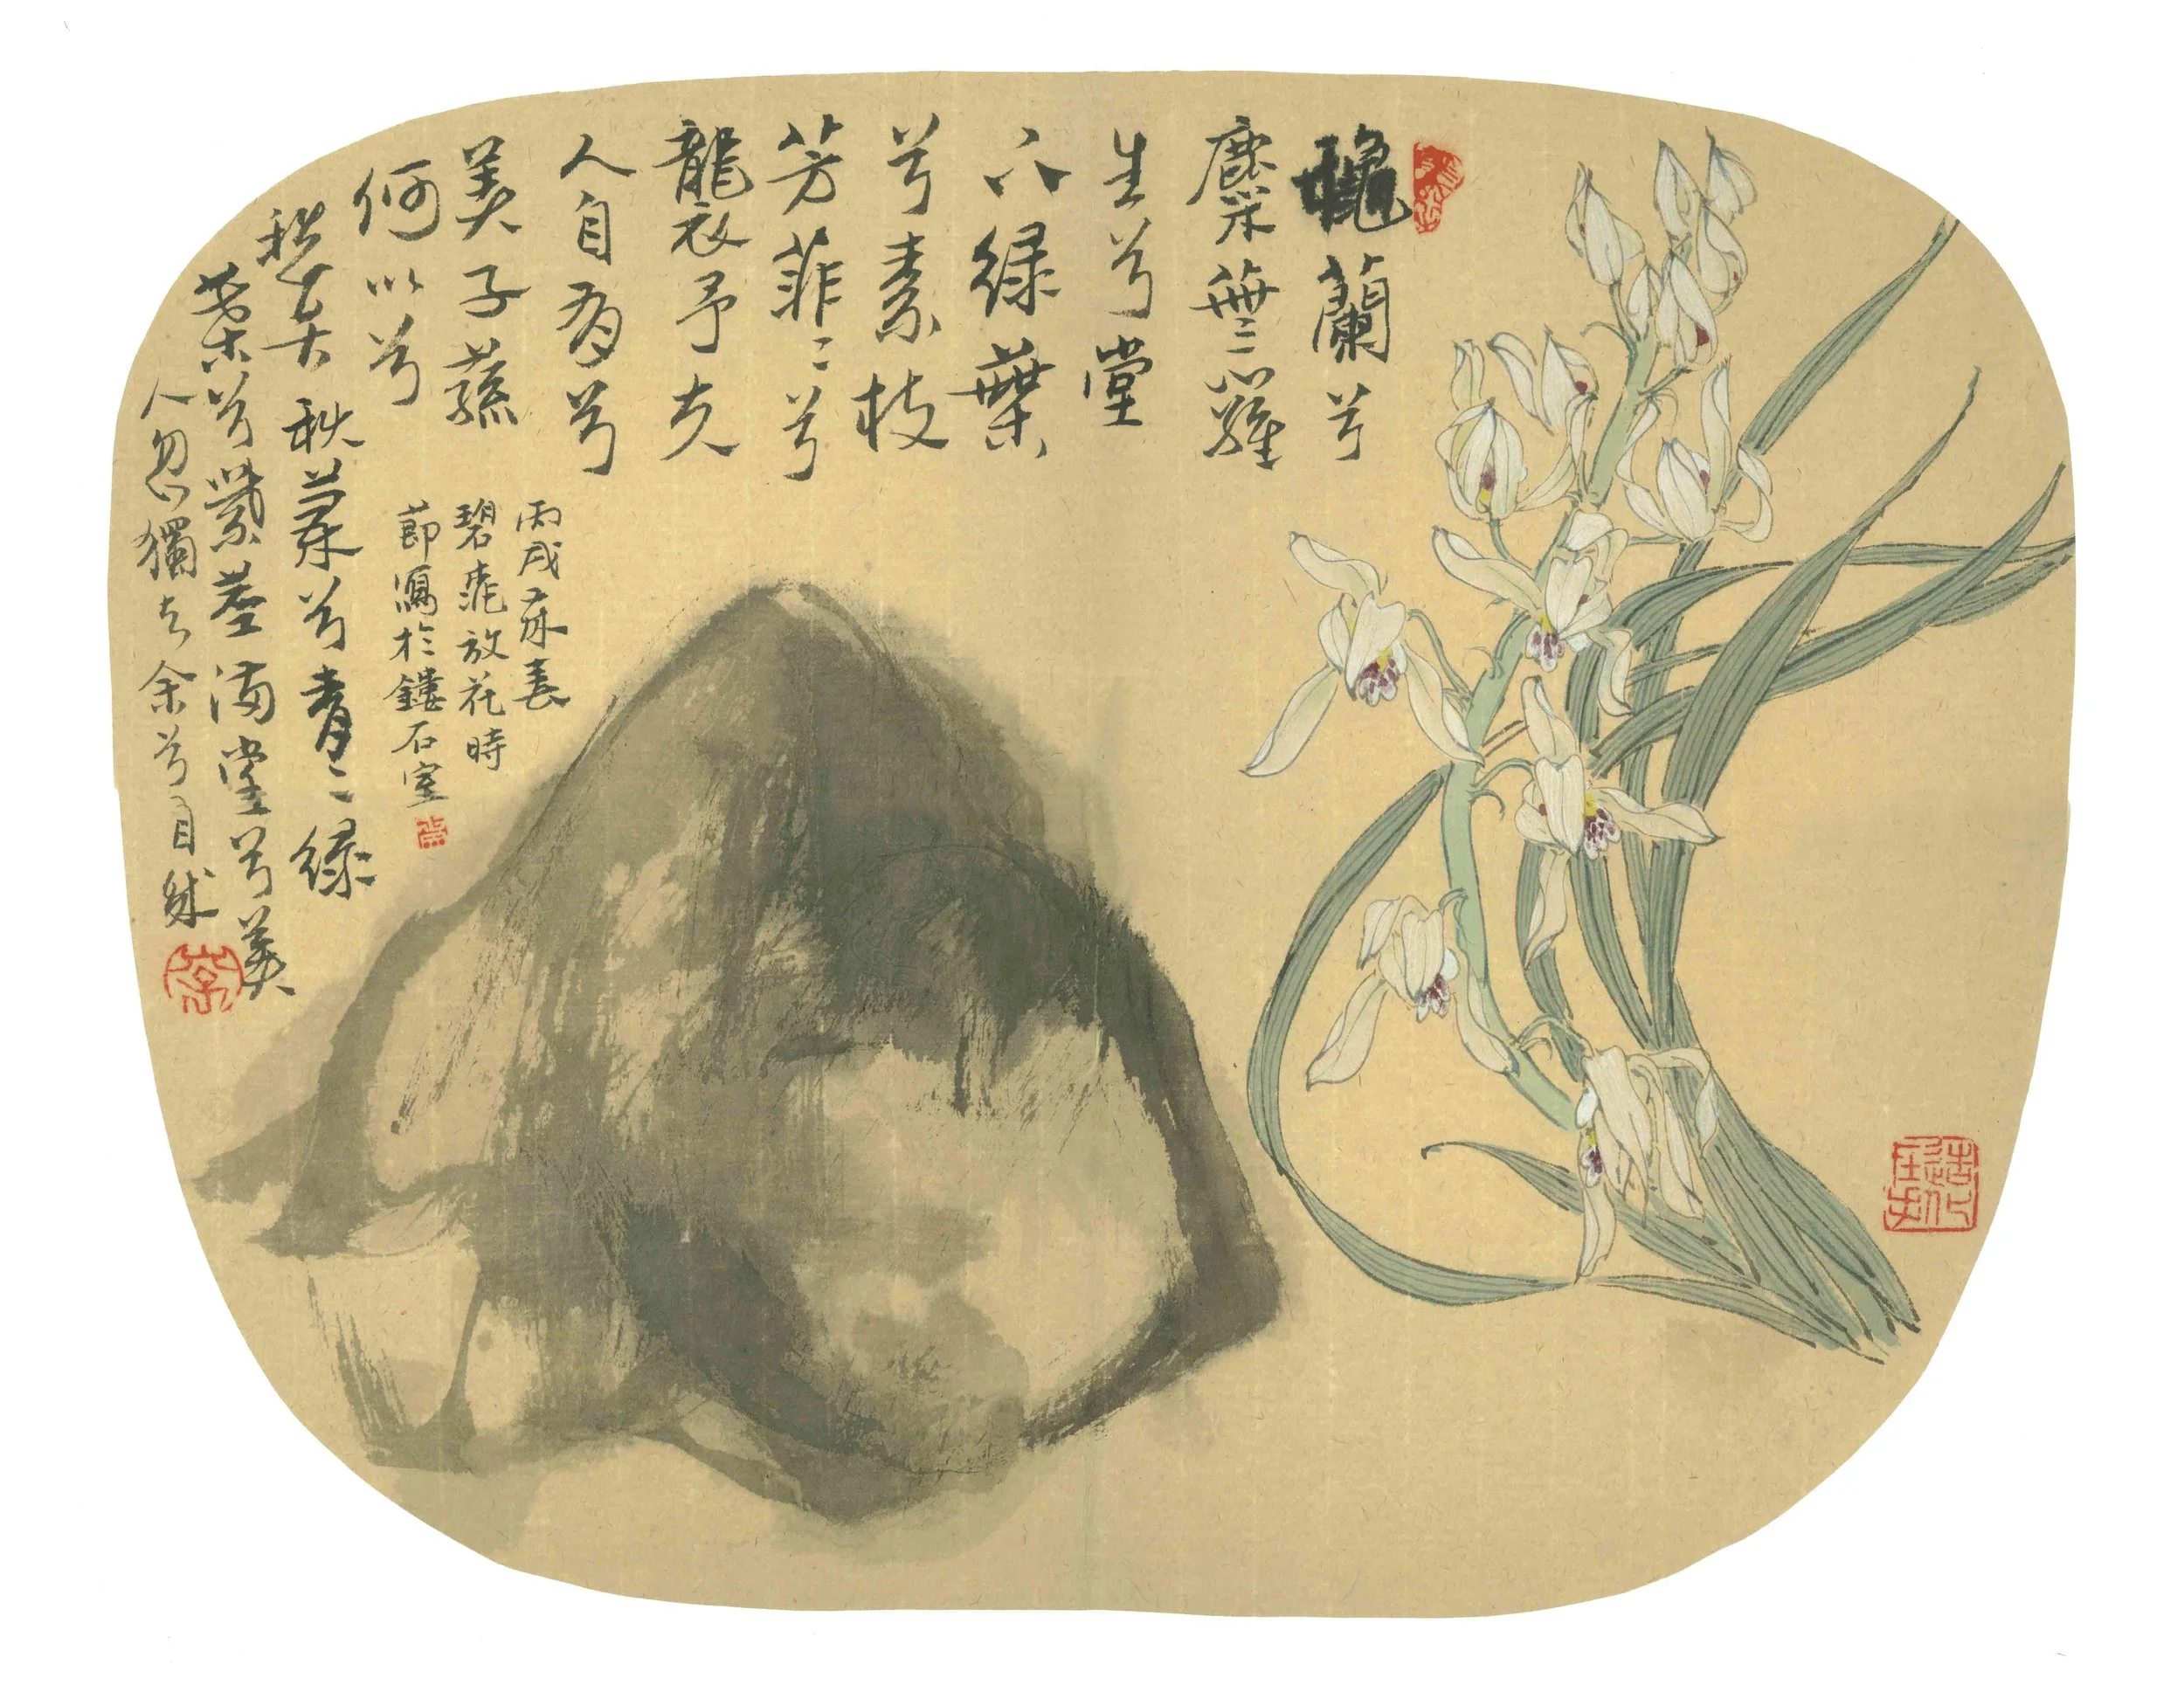 龝蘭兮
麋蕪羅
生兮堂
下綠葉
兮素枝
芳菲〻兮
襲予夫
人自有兮
美子蓀
何以兮
愁苦秋蘭兮青〻綠
葉兮紫莖滿堂兮美
人忽獨与余兮目成
丙戌春
碧桃放花時
節寫於鏤石室
造化在手